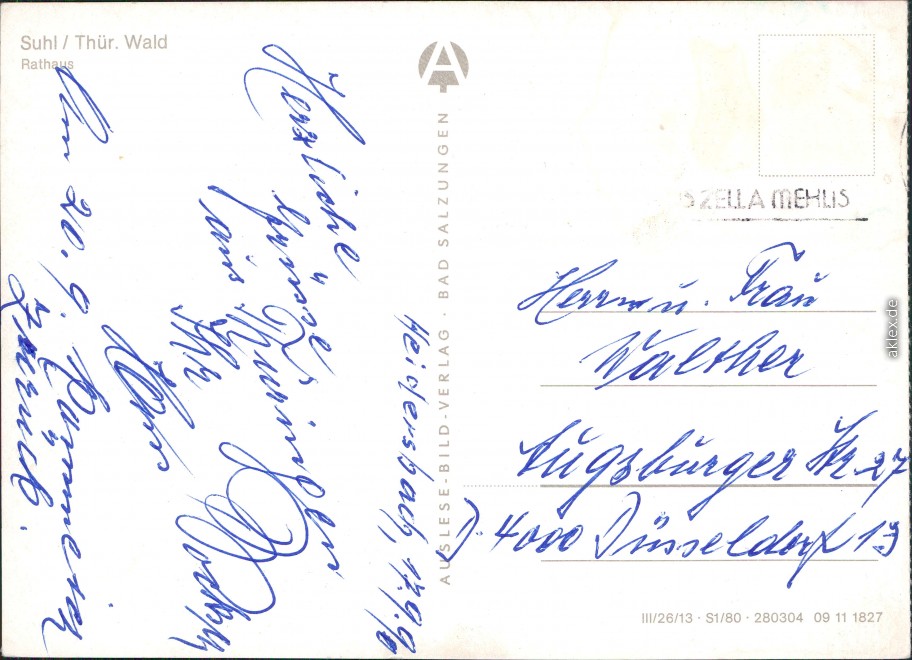 Suhl / Thür. Wald
Rathaus
AUSLESE-BILD-VERLAG · BAD SALZUNGEN
ZELLA MEHLIS
Heidersbach, 17.9.90
Herzliche
Grüsse
aus Thüringen
Ihr
Hans
Am 20.9. komme ich
zurück.
Herrn u. Frau
Walther
Augsburger Str. 27
4000 Düsseldorf 13
III/26/13 · S1/80 · 280304 09 11 1827
aklex.de